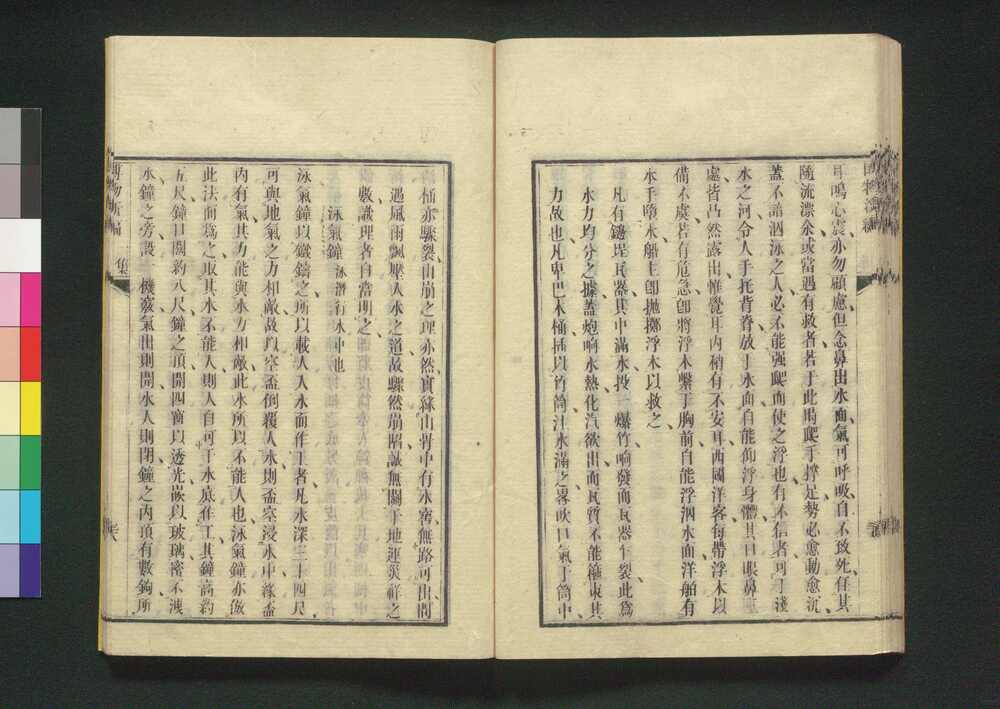 耳鳴心震亦勿顧慮但念鼻出水面氣可呼吸自不致死任其
隨流漂氽或當遇有救者若于此時爬手撐足勢必愈動愈沉
蓋不諳泅泳之人必不能强爬而使之浮也有不信者可于淺
水之河令人手托背脊放于水面自能仰浮身體其口眼鼻
處皆凸然露出惟覺耳內稍有不安耳西國洋客每帶浮木以
備不虞若有危急卽將浮木繫于胸前自能浮泅水面洋舶有
水手墮水船主卽拋擲浮木以救之
凡有罅玻瓦器其中滿水投一爆竹响發而瓦器乍裂此為
水力均分之據蓋炮响水熱化汽欲出而瓦質不能箍束其
力故也凡卑巴木桶插以竹筒注水滿之畧吹口氣于筒中
桶亦驟裂山崩之理亦然實緣山骨中有水窖無路可出間
遇風雨飄壓入水之道故驟然崩陷誠無關于地運災祥之
數識理者自當明之
泳氣鐘 泳潛行水中也
泳氣鐘以鐵鑄之所以載人入水而作工者凡水深三十四尺
可與地氣之力相敵故以空盃倒覆入水則盃空浸水中緣盃
內有氣其力能與水力相敵此水所以不能入也泳氣鐘亦倣
此法而為之取其水不能入則人自可于水底作工其鐘高約
五尺鐘口闊約八尺鐘之頂開四窗以透光嵌以玻璃密不洩
水鐘之旁設一機竅氣出則開水入則閉鐘之內頂有數鉤所
博物新編 一集